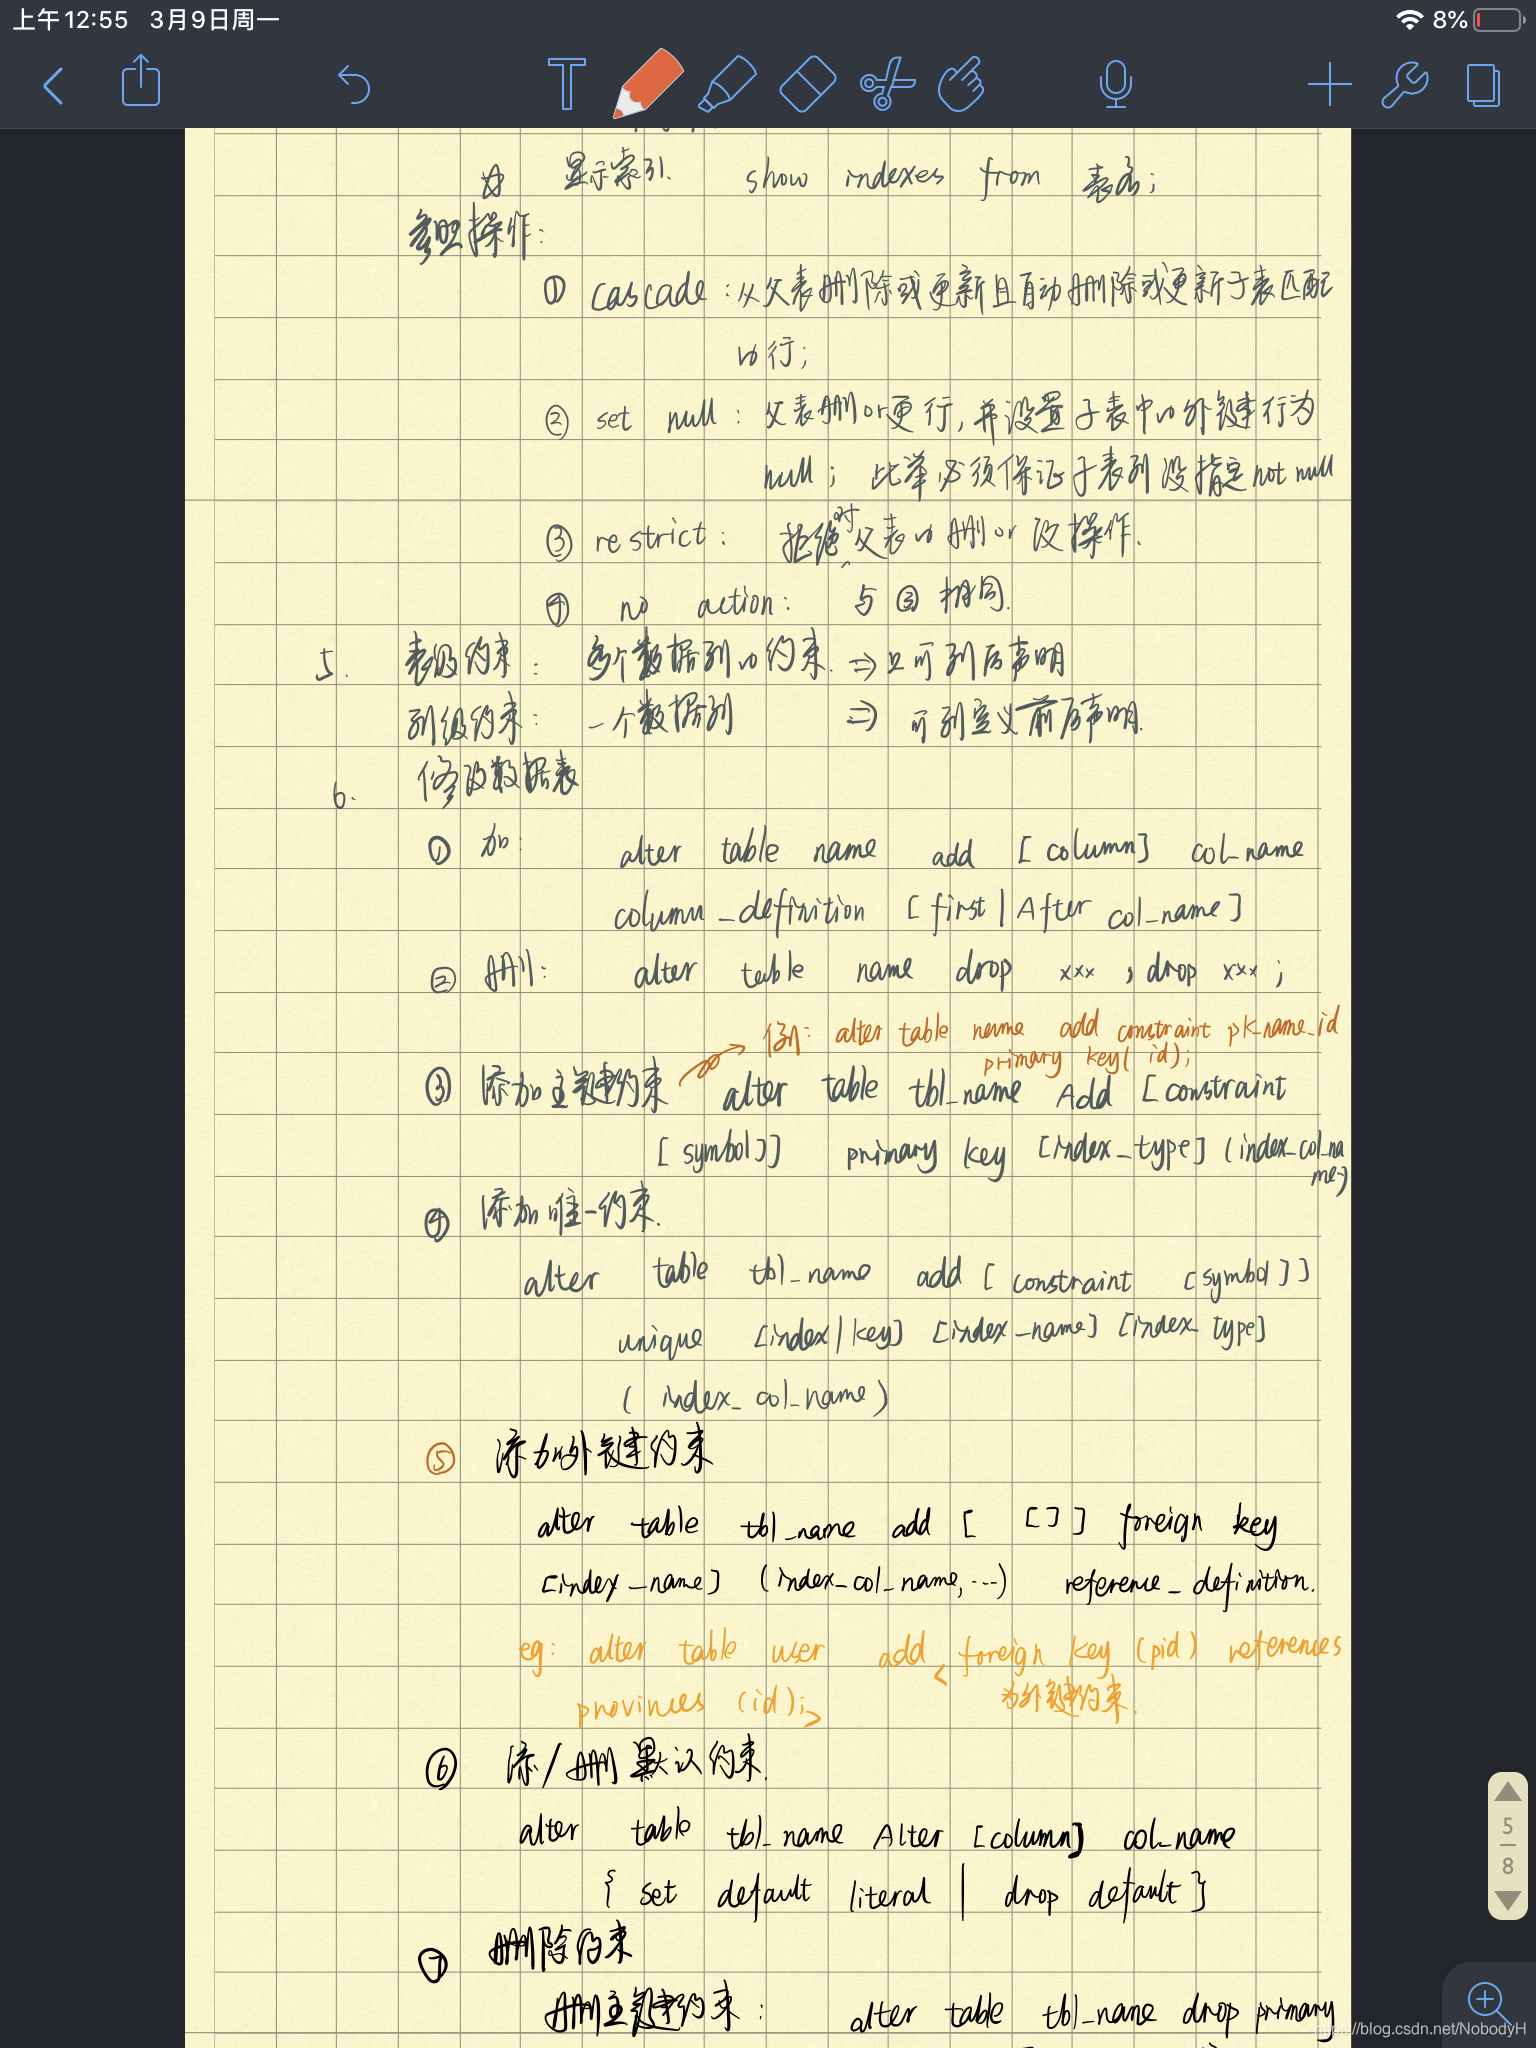 上午12:55 3月9日周一
8%
显示索引. show indexes from 表名;
参照操作:
① cascade: 从父表删除或更新且自动删除或更新子表匹配
的行;
② set null: 父表删or更行,并设置子表中的外键行为
null; 此举必须保证子表列没指定not null
③ restrict: 拒绝对父表的删or改操作.
④ no action: 与③相同.
5. 表级约束: 多个数据列的约束. => 只可列后声明
列级约束: 一个数据列 => 可列定义前后声明.
6. 修改数据表
① 加: alter table name add [column] col_name
column_definition [first|After col_name]
② 删: alter table name drop xxx, drop xxx;
例: alter table name add constraint pk_name_id
primary key(id);
③ 添加主键约束 alter table tbl_name Add [constraint
[symbol]] primary key [index_type] (index_col_na
me)
④ 添加唯一约束.
alter table tbl_name add [constraint [symbol]]
unique [index|key] [index_name] [index_type]
(index_col_name)
⑤ 添加外键约束
alter table tbl_name add [ [ ] ] foreign key
[index_name] (index_col_name,...) reference_definition.
eg: alter table user add < foreign key (pid) references
provinces (id);>
为外键约束.
⑥ 添/删默认约束.
alter table tbl_name Alter [column] col_name
{ set default literal | drop default }
⑦ 删除约束
删主键约束: alter table tbl_name drop primary
5
8
https://blog.csdn.net/NobodyH